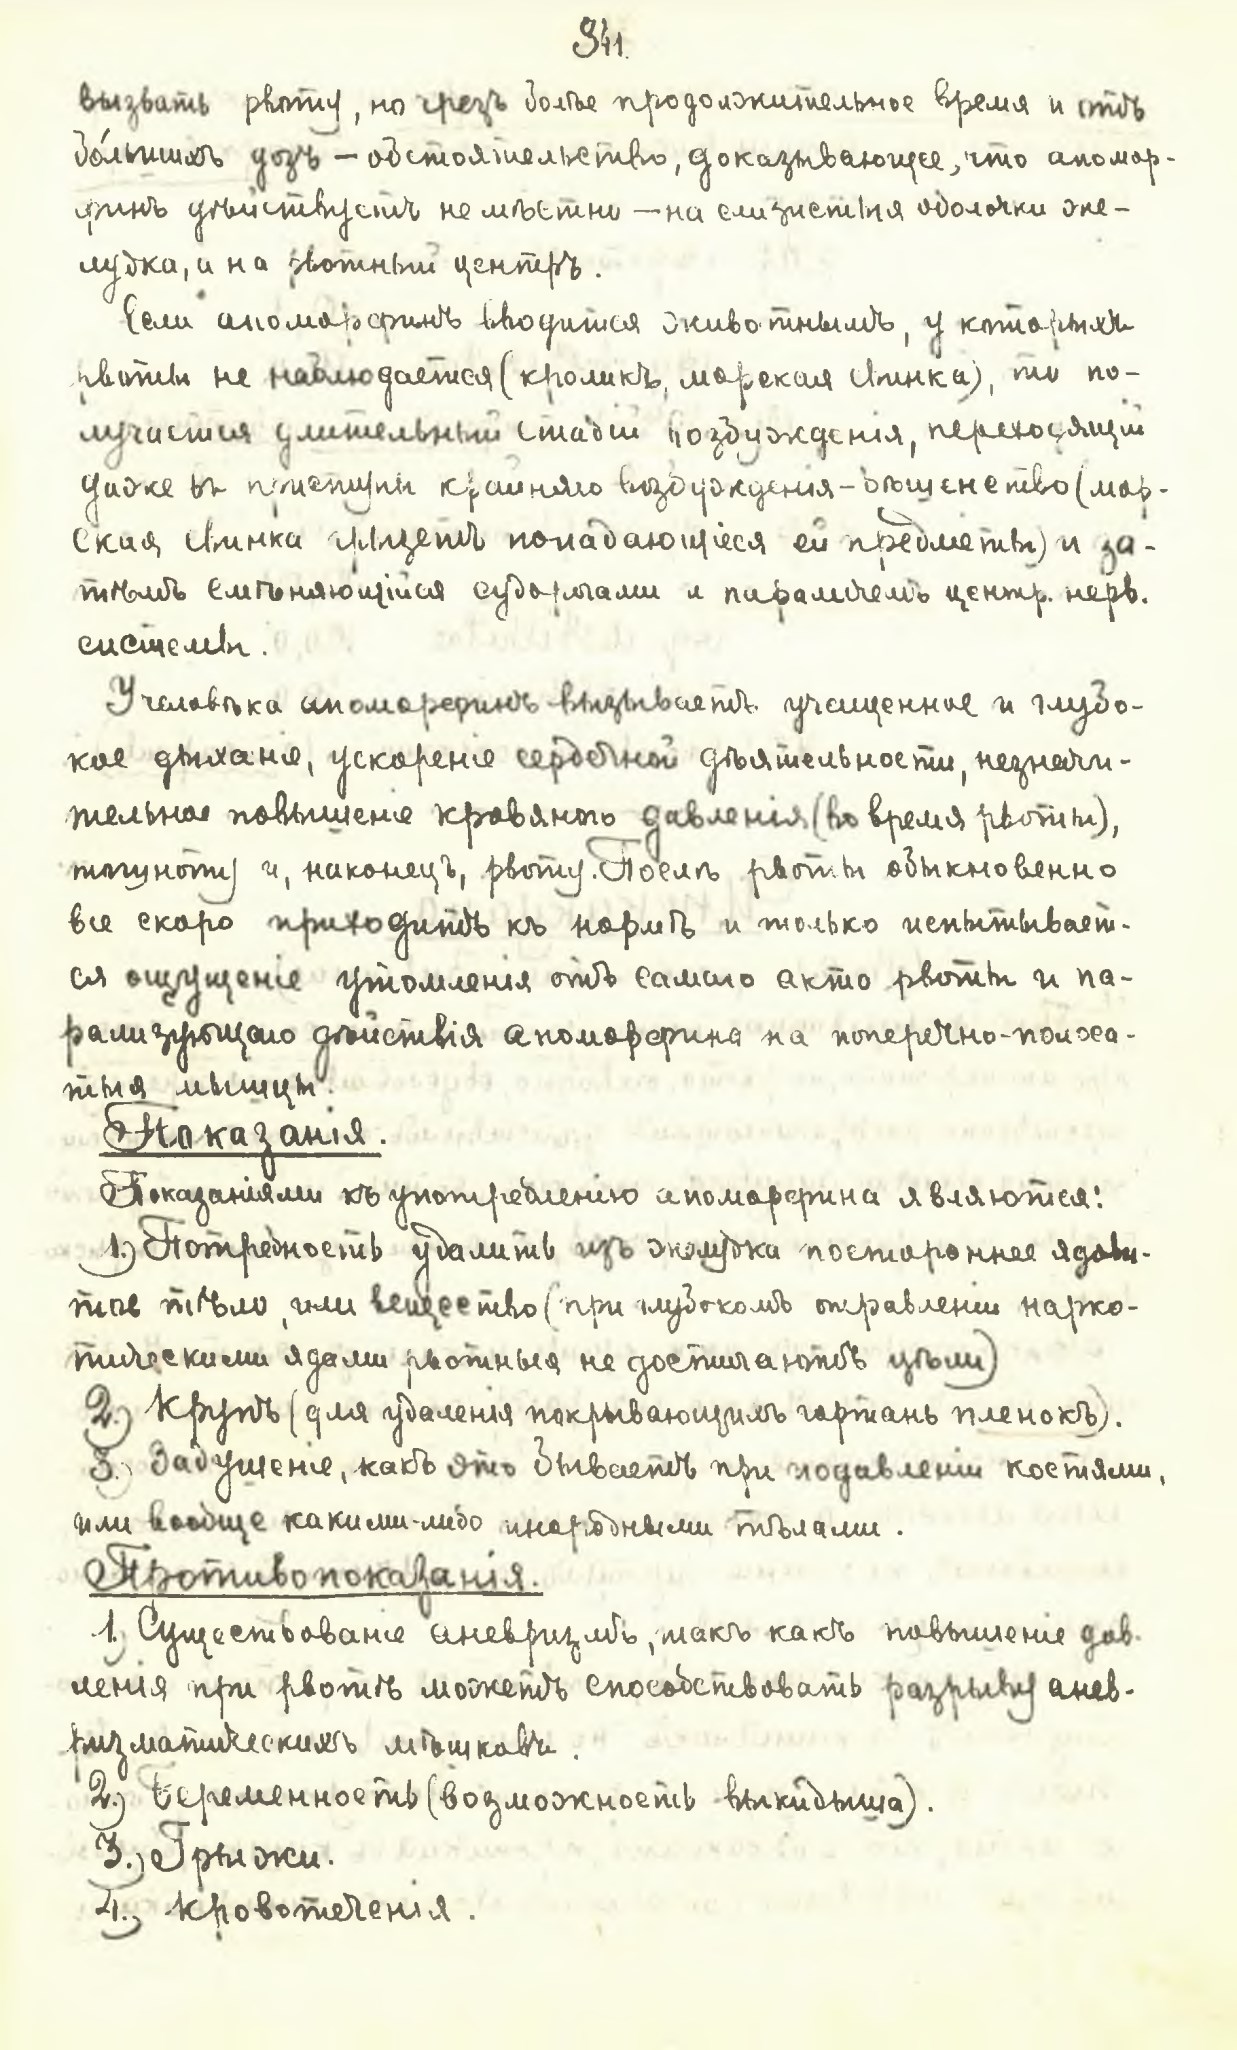 341.
вызвать рвоту, но чрезъ болѣе продолжительное время и отъ
бо́льшихъ дозъ — обстоятельство, доказывающее, что апомор-
финъ дѣйствуетъ не мѣстно — на слизистыя оболочки же-
лудка, а на рвотный центръ.
Если апоморфинъ вводится животнымъ, у которыхъ
рвоты не наблюдается (кроликъ, морская свинка), то по-
лучается длительный стадій возбужденія, переходящій
даже въ приступы крайняго возбужденія - бѣшенство (мор-
ская свинка грызетъ попадающіеся ей предметы) и за-
тѣмъ смѣняющійся судорогами и параличемъ центр. нерв.
системы.
У человѣка апоморфинъ вызываетъ учащенное и глубо-
кое дыханіе, ускореніе сердечной дѣятельности, незначи-
тельное повышеніе кровяного давленія (во время рвоты),
тошноту и, наконецъ, рвоту. Послѣ рвоты обыкновенно
все скоро приходитъ къ нормѣ и только испытывает-
ся ощущеніе утомленія отъ самаго акто рвоты и па-
рализующаго дѣйствія апоморфина на поперечно-полоса-
тыя мышцы.
Показанія.
Показаніями къ употребленію апоморфина являются:
1.) Потребность удалить изъ желудка постороннее ядови-
тое тѣло, или вещество (при глубокомъ отравленіи нарко-
тическими ядами рвотныя не достигаютъ цѣли)
2.) Крупъ (для удаленія покрывающихъ гортань пленокъ).
3.) Задушеніе, какъ это бываетъ при подавленіи костями,
или вообще какими-либо инородными тѣлами.
Противопоказанія.
1.) Существованіе аневризмъ, такъ какъ повышеніе дав-
ленія при рвотѣ можетъ способствовать разрыву анев-
ризматическихъ мѣшковъ.
2.) Беременность (возможность выкидыша).
3.) Грыжи.
4.) Кровотеченія.